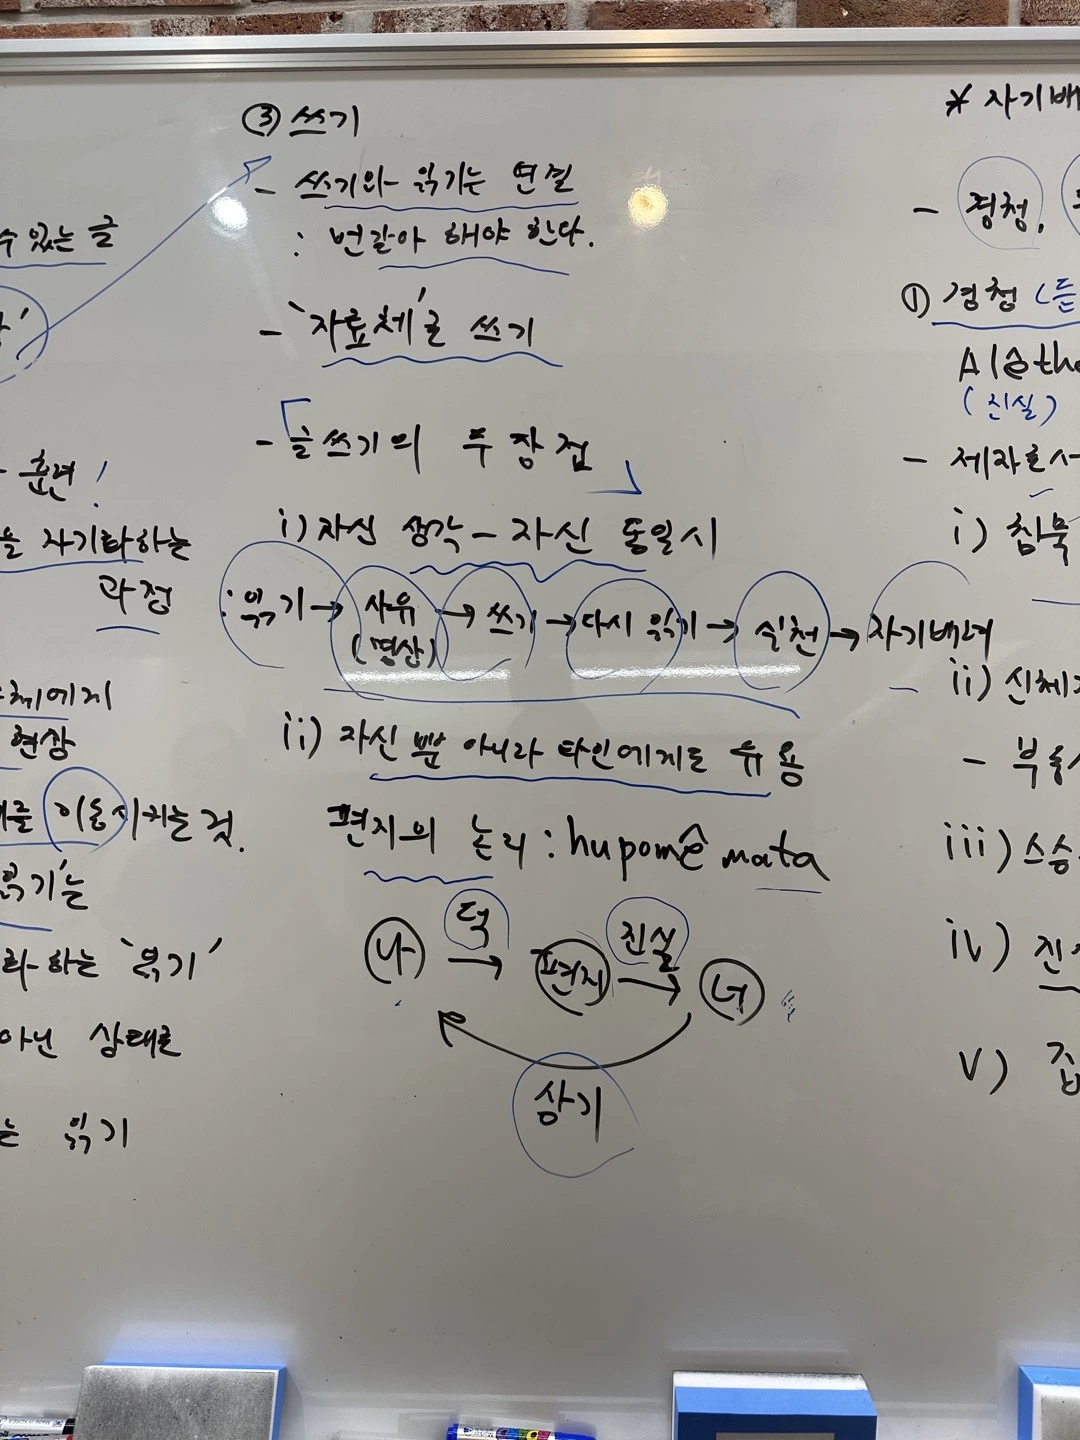 수 있는 글
훈련!
을 자기화하는
과정
체에게
현상
를 이동시키는 것.
읽기'는
화하는 '읽기'
아닌 상태로
는 읽기
③ 쓰기
- 쓰기와 읽기는 연결
: 번갈아 해야 한다.
- '자료체'로 쓰기
- 「글쓰기의 두 장점」
i) 자신 생각 - 자신 동일시
: 읽기 → 사유 (명상) → 쓰기 → 다시 읽기 → 실천 → 자기배려
ii) 자신 뿐 아니라 타인에게도 유용
편지의 논리 : hupomêmata
나 덕 → 편지 진실 → 너
상기
* 자기배
- 경청,
① 경청 (듣
Alêthe
(진실)
- 제자로서
i) 침묵
ii) 신체
- 부동
iii) 스승
iv) 진
v)